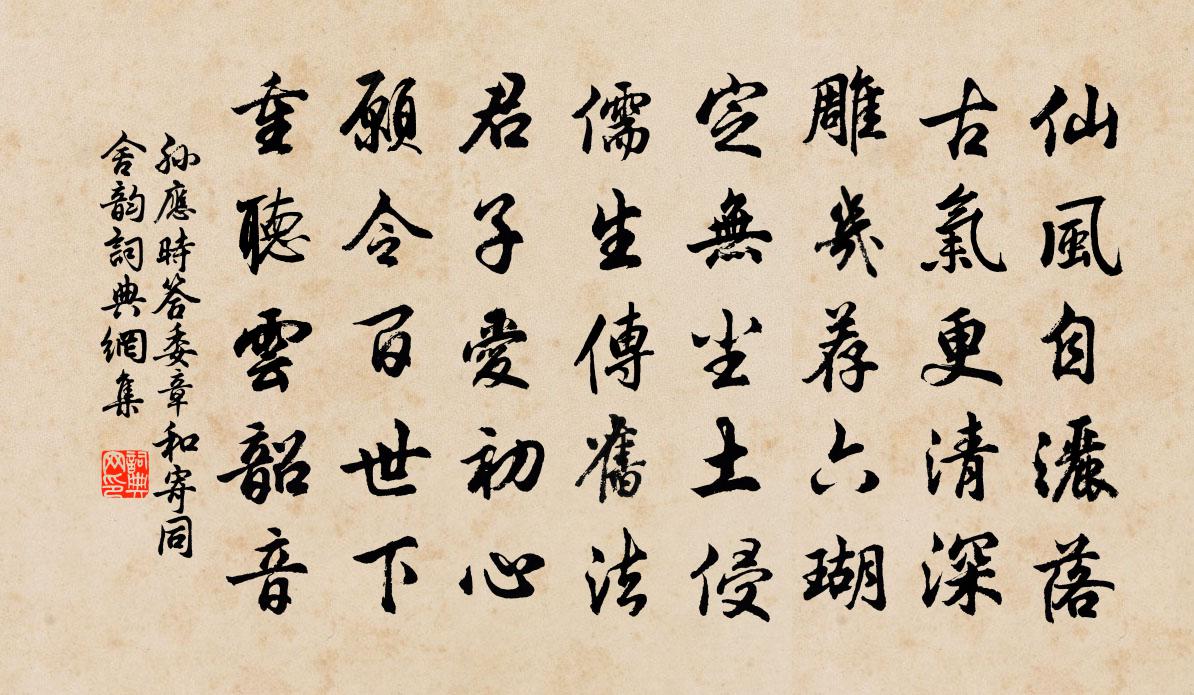 仙風自灑落
古氣更清深
雕幾荐六瑚
定無尘土侵
儒生傳舊法
君子愛初心
願令百世下
重聽雲韶音
孫應時答委章和寄同
舍韵詞典網集
詞典网印